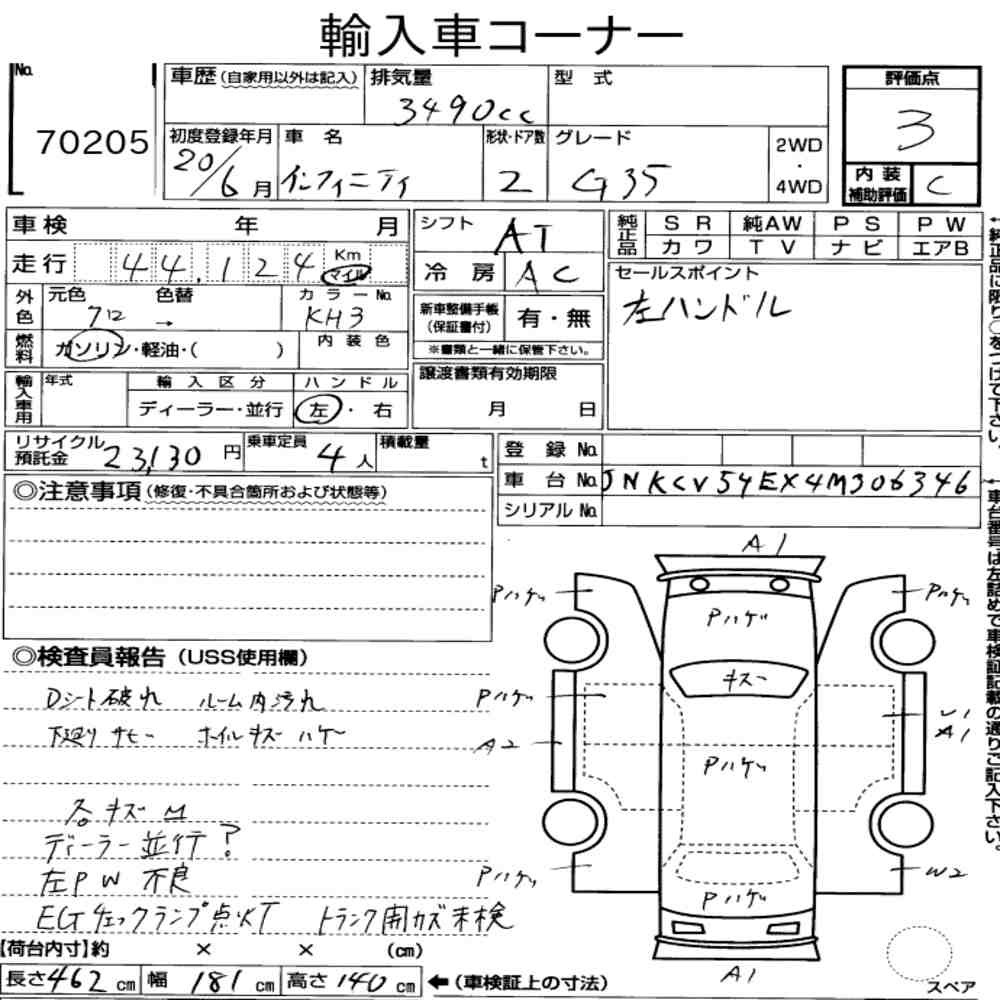 輸入車コーナー
No. 70205
車歴(自家用以外は記入)
排気量 3490cc
型式
評価点 3
初度登録年月 20/6月
車名 インフィニティ
形状・ドア数 2
グレード G35
2WD・4WD
内装補助評価 C
車検 年 月
シフト AT
純正品 SR 純AW PS PW
カワ TV ナビ エアB
走行 44,124 Km マイル
冷房 AC
セールスポイント
左ハンドル
外色 元色 クロ 色替 → カラーNo. KH3
新車整備手帳(保証書付) 有・無
※書類と一緒に保管下さい。
燃料 ガソリン・軽油・( )
内装色
譲渡書類有効期限
月 日
輸入車用 年式 輸入区分 ハンドル
ディーラー・並行 左・右
リサイクル預託金 23,130円
乗車定員 4人
積載量 t
登録No.
車台No. JNKCV54EX4M306346
シリアルNo.
←純正品に限り○をつけて下さい。
←車台番号は左詰めで車検証記載の通りご記入下さい。
◎注意事項(修復・不具合箇所および状態等)
◎検査員報告(USS使用欄)
Dシート破れ ルーム内汚れ
下廻りサビー ホイルキズハゲー
各キズM
ディーラー並行?
左PW不良
EGチェックランプ点灯 トランク開カズ未検
A1
Pハゲ
Pハゲ
Pハゲ
キズー
Pハゲ
A2
A1
Pハゲ
Pハゲ
W2
Pハゲ
A1
スペア
【荷台内寸】約 × × (cm)
長さ462cm 幅181cm 高さ140cm ←(車検証上の寸法)